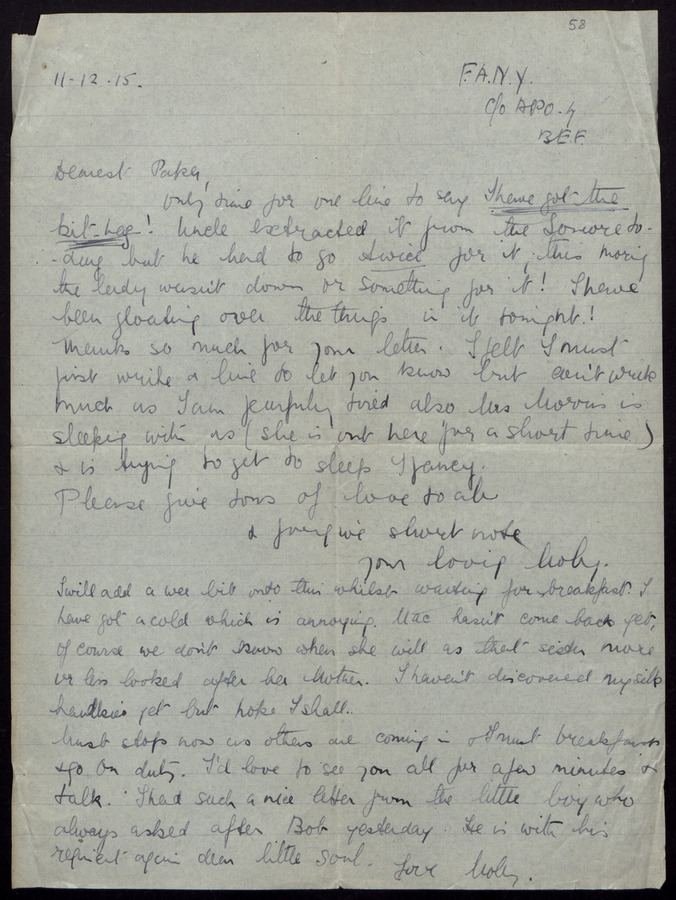 58
11-12-15.
F.A.N.Y.
c/o APO. 4
B.E.F.
Dearest
only time for one line to say I have got the
kit-bag! Uncle extracted it from the to-
-day but he had to go twice for it, this morning
the lady wasn't down or something for it! I have
been gloating over the things in it tonight!
Thanks so much for your letter. I felt I must
first write a line to let you know but can't write
much as I am fearfully tired also Mrs is
sleeping with us (she is out here for a short time)
& is trying to get to sleep I fancy.
Please give tons of love to all
& forgive short note
your loving Moly.
I will add a wee bit onto this whilst waiting for breakfast. I
have got a cold which is annoying. Mac hasn't come back yet,
of course we don't know when she will as that sister more
or less looked after her Mother. I haven't discovered my silk
hankies yet but hope I shall.
Must stop now as others are coming in & I must breakfast
& go on duty. I'd love to see you all for a few minutes &
talk. I had such a nice letter from the little boy who
always asked after Bob yesterday. He is with his
regiment again dear little soul. Love Moly.